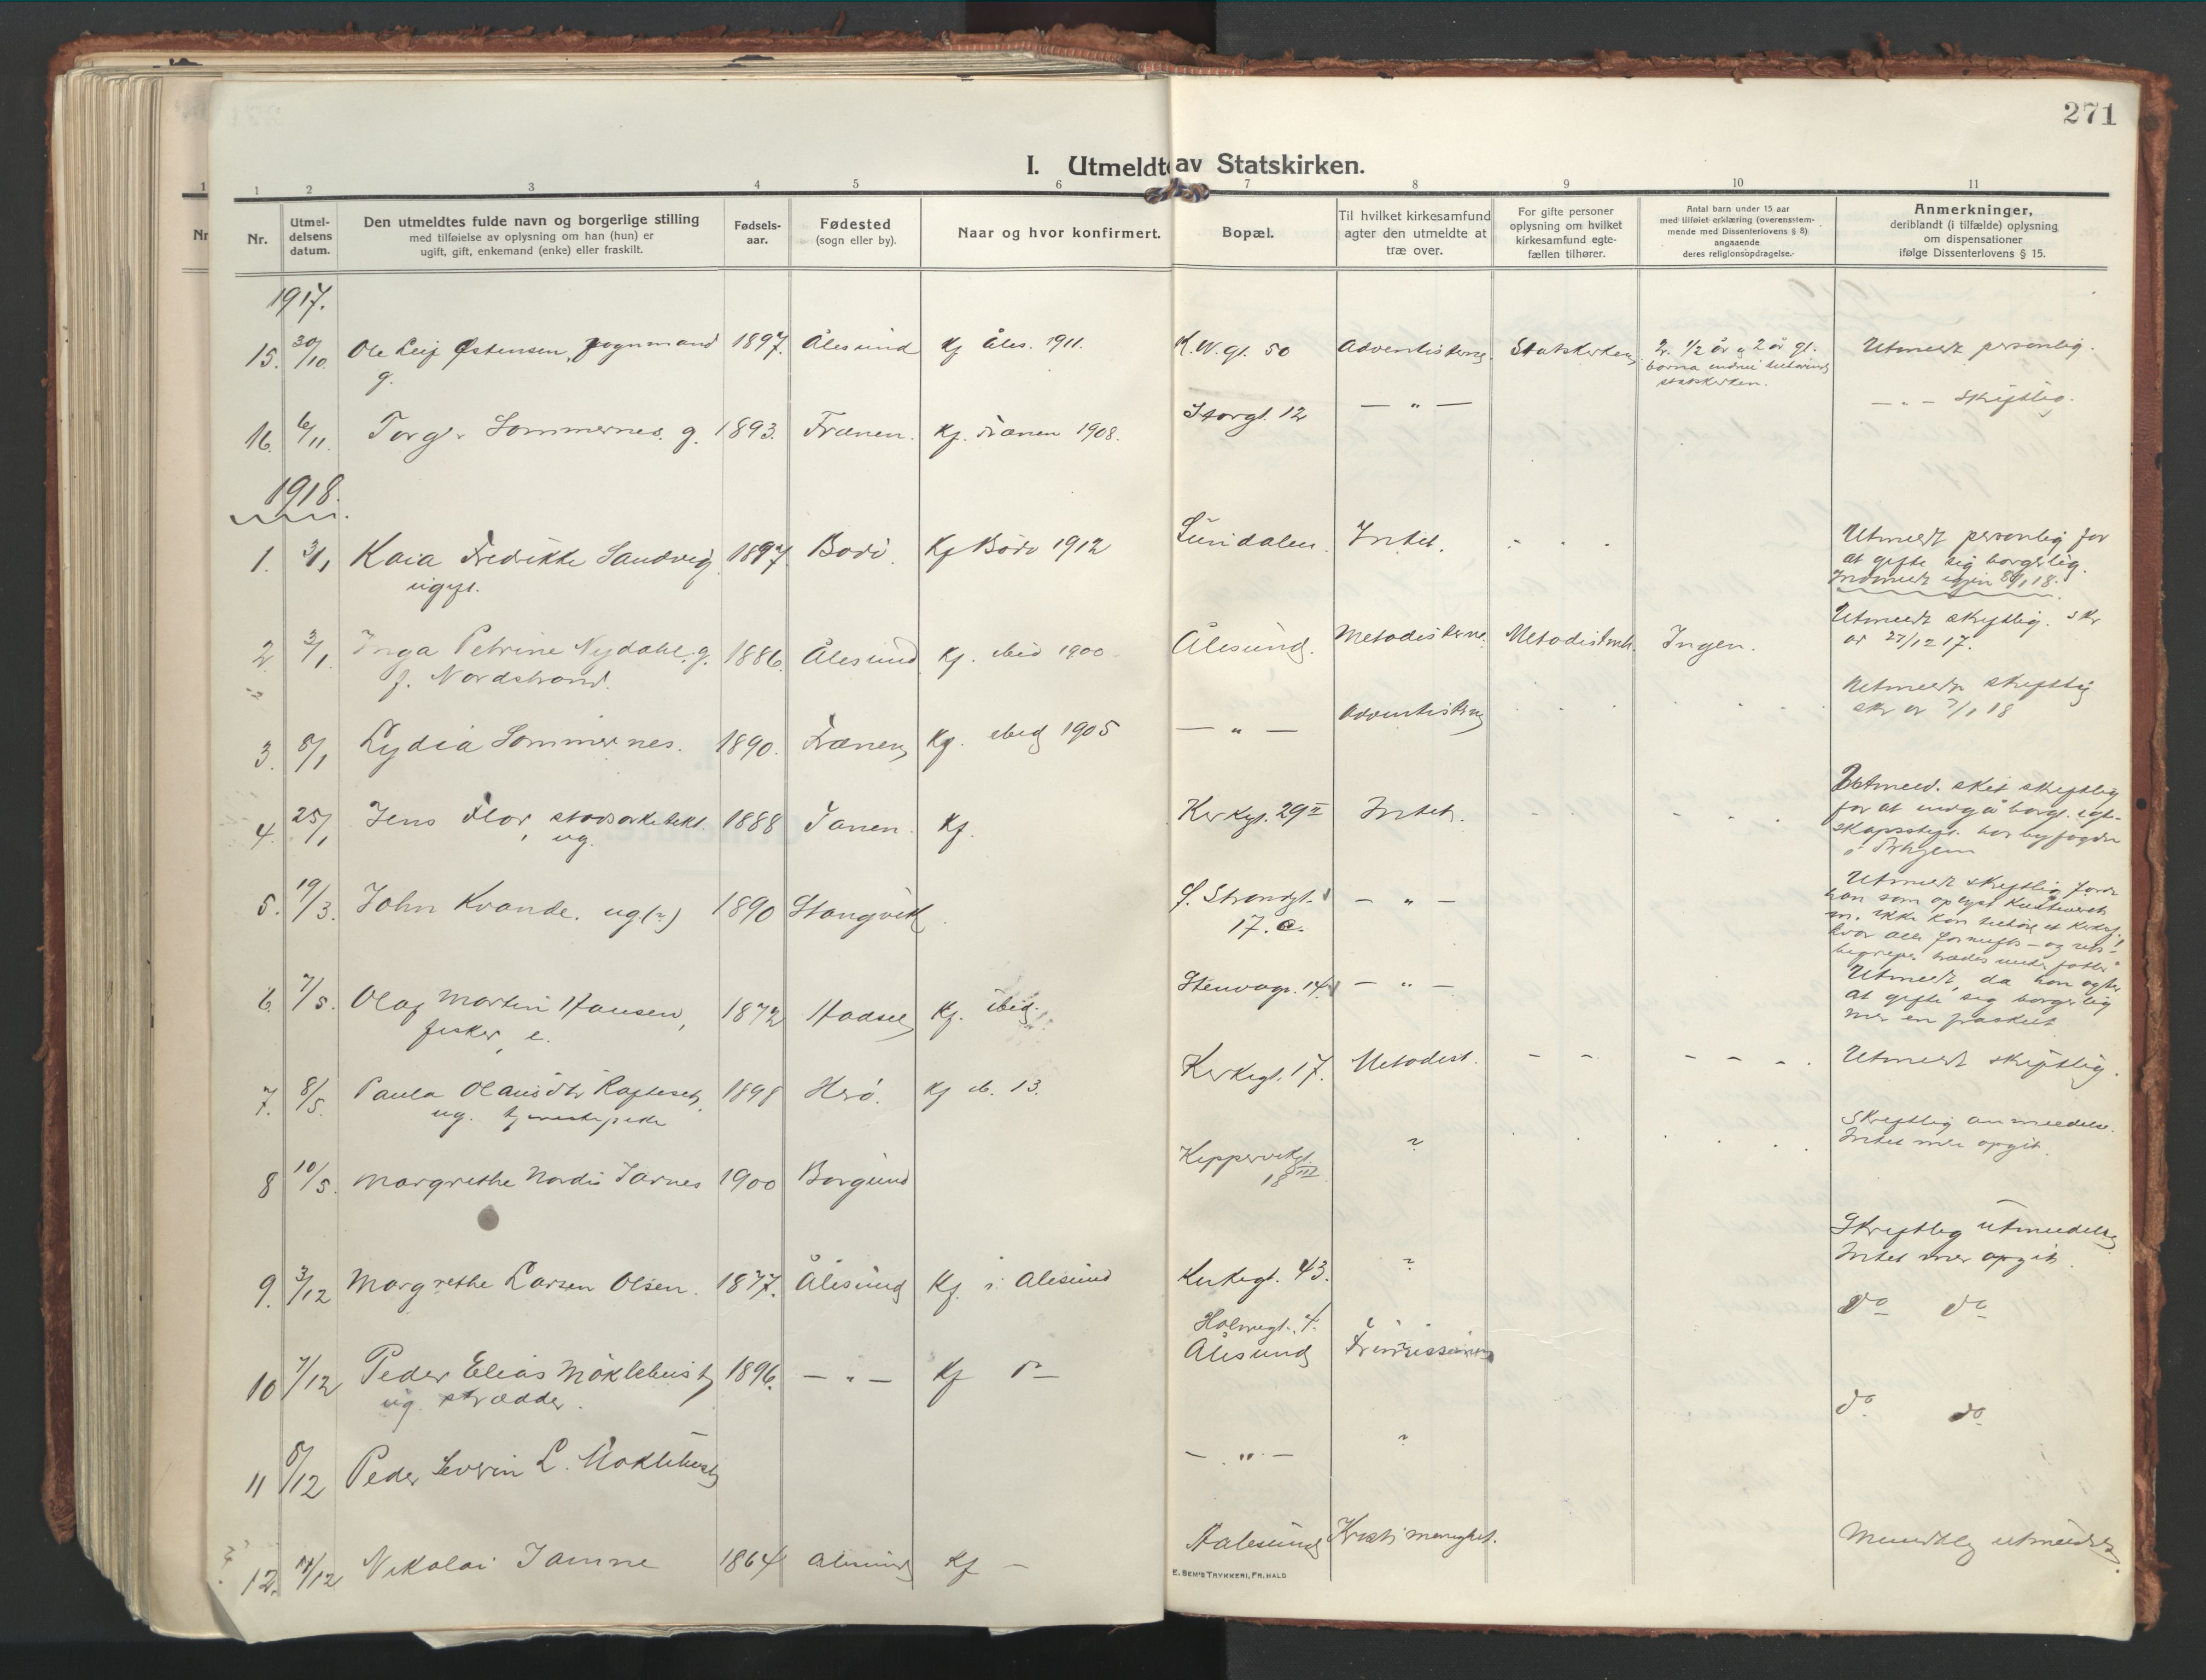 271
I. Utmeldte av Statskirken.
1 2 3 4 5 6 7 8 9 10 11
Nr.
Utmel-
delsens
datum.
Den utmeldtes fulde navn og borgerlige stilling
med tilføielse av oplysning om han (hun) er
ugift, gift, enkemand (enke) eller fraskilt.
Fødsels-
aar.
Fødested
(sogn eller by).
Naar og hvor konfirmert.
Bopæl.
Til hvilket kirkesamfund
agter den utmeldte at
træ over.
For gifte personer
oplysning om hvilket
kirkesamfund egte-
fællen tilhører.
Antal barn under 15 aar
med tilføiet erklæring (overensstem-
mende med Dissenterlovens § 8)
angaaende
deres religionsopdragelse.
Anmerkninger,
deriblandt (i tilfælde) oplysning
om dispensationer
ifølge Dissenterlovens § 15.
1917.
15. 30/10. Ole Leif Østensen, fognmand 1897. Ålesund Kf Åles. 1911. K.W.gt. 50 Adventisterne. Statskirken 2. 1/2 år & 2 år gl. Utmeldt personlig.
g.
barna endnu i
statskirken.
16. 6/11. Sommernes. g. 1893. Frænen. Kf. Frænen 1908. Storgt. 12 — " — — " — Skriftlig.
1918.
1. 3/1 Kaia Fredrikke Sandvig 1897. Bodö. Kf Bodö 1912 Sundalen. Intet. Utmeldt personlig for
ugift.
at gifte sig borgerlig.
Indmeldt igjen
2 3/1. Inga Petrine Nydahl. g. 1886. Ålesund Kf. ibid 1900 Ålesund. Metodisterne. Metodistmh. Ingen. Utmeldt skriftlig. skr
f. Nordstrand.
av 27/12 17.
3. 8/1 Lydia Sommernes. 1890. Frænen Kf. ibid 1905 — " — Adventisterne Utmeldt skriftlig
skr av 7/1 18
4. 25/1 Jens Flor, stadsarkitekt. 1888 Kf. Kirkegt. 29 II Intet. Utmeld. sket skriftlig
ug.
for at indgå borgl. egte-
skapsstift. hos byfogden
5. 19/3. John Kvande. ug(?) 1890 Stangvik Ø. Strandgt. — " — Utmeldt skriftlig fordi
17. C.
han som
m. ikke kan tilhöre et
hvor alle fornufts- og rets-
begreper trædes under fötter"
6. 7/5. Olaf Martin Hansen, 1872 Hadsel Kf. ibid. Stenvågv. 14 — " — Utmeldt, da han agter
fisker, e.
at gifte sig borgerlig
med en fraskilt
7. 8/5. Paula Olausdtr Rafteseth, 1898 Herö. Kf ib. 13. Kirkegt. 17. Metodist. - - - - - Utmeldt skriftlig.
ug. tjenestepike
8 10/5. Margrethe Nordis Jarnes 1900 Borgund Kippervikgt. ? Skriftlig anmeldelse.
18 III
Intet mer opgit.
9. 3/12 Margrethe Larsen Olsen. 1877. Ålesund Kf. i Ålesund Kirkegt. 43. ? Skriftlig utmeldelse
Intet mer opgit.
10 7/12 Peder Elias Möklebust 1896. — " — Kf Holmegt. 4. Ålesund Frimissionen do do
ug. skrædder.
11 8/12 Peder Severin L. Möklebust — " — ? do do
12. Nikolai Jamne 1864 Ålesund Kf - Aalesund Kristi menighet. Mundtlig utmeldelse.
E. SEM'S TRYKKERI, FR. HALD